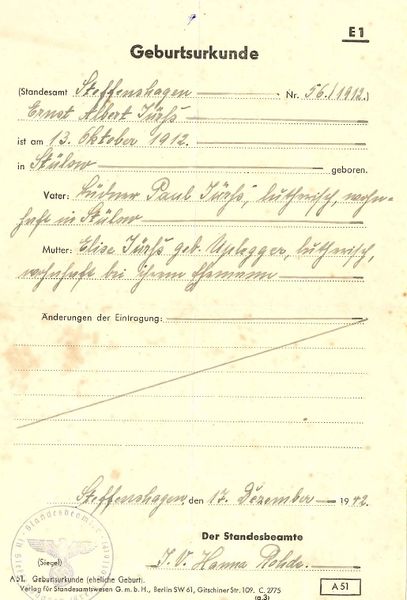 E 1
Geburtsurkunde
(Standesamt Steffenshagen Nr. 56/1912.)
Ernst Albert Jürß
ist am 13. Oktober 1912.
in Stülow geboren.
Vater: Büdner Paul Jürß, lutherisch, wohn-
haft in Stülow
Mutter: Elise Jürß geb. Uplegger, lutherisch,
wohnhaft bei ihrem Ehemann
Änderungen der Eintragung:
Steffenshagen, den 17. Dezember 1942.
Der Standesbeamte
(Siegel) J. V. Hanna Rohde.
A 51. Geburtsurkunde (eheliche Geburt).
Verlag für Standesamtswesen G. m. b. H., Berlin SW 61, Gitschiner Str. 109. C. 2775
A 51